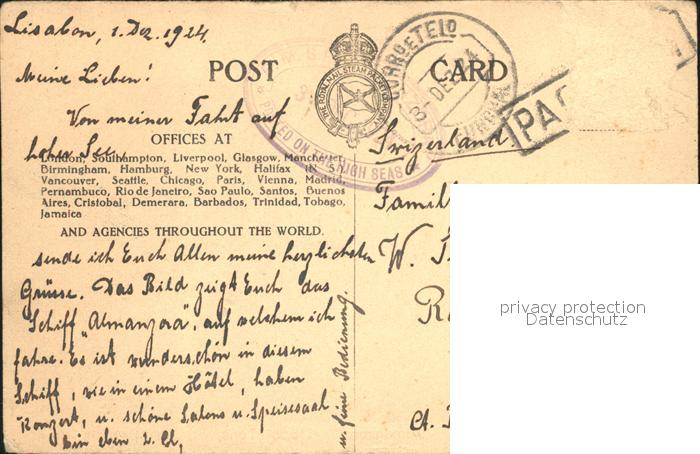 Lisabon, 1. Dez. 1924.
Meine Lieben!
POST CARD
THE ROYAL MAIL STEAM PACKET COMPANY
POSTED ON THE HIGH SEAS
CORRO E TELO
DE
PA
Von meiner Fahrt auf
hoher See
OFFICES AT
London, Southampton, Liverpool, Glasgow, Manchester,
Birmingham, Hamburg, New York, Halifax
Vancouver, Seattle, Chicago, Paris, Vienna, Madrid,
Pernambuco, Rio de Janeiro, Sao Paulo, Santos, Buenos
Aires, Cristobal, Demerara, Barbados, Trinidad, Tobago,
Jamaica
AND AGENCIES THROUGHOUT THE WORLD.
sende ich Euch Allen meine herzlichsten
Grüsse. Das Bild zeigt Euch das
Schiff "Almanzora", auf welchem ich
fahre. Es ist wunderschön in diesem
Schiff, wie in einem Hôtel, haben
Konzert, u. schöne Salons u. Speisesaal.
Bin eben 2. Cl,
u. feine Bedienung.
Swizerland.
Famil
W.
privacy protection
Datenschutz